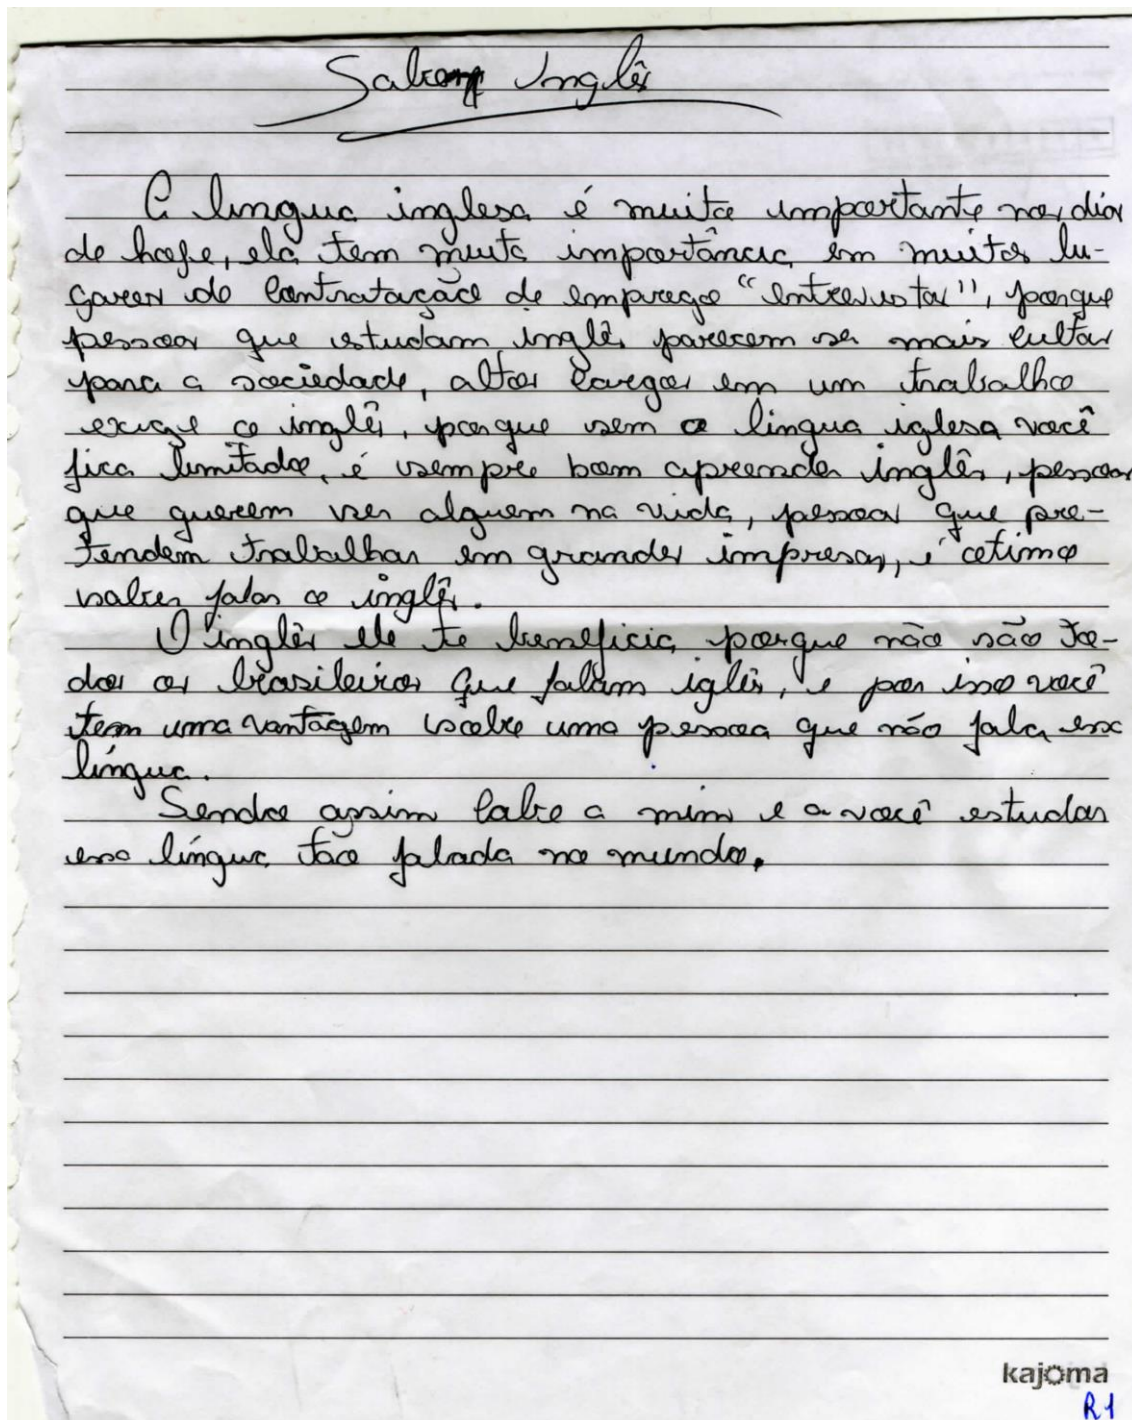 Saber Inglês
A lingua inglesa é muito importante nos dias
de hoje, ela tem muita importância em muitos lu-
gares de contratação de emprego "entrevistas", porque
pessoas que estudam inglês parecem ser mais cultas
para a sociedade, altos cargos em um trabalho
exige o inglês, porque sem a lingua iglesa você
fica limitado, é sempre bom aprender inglês, pessoas
que querem ser alguem na vida, pessoas que pre-
tendem trabalhar em grandes impresas, é otimo
saber falar o inglês.
O inglês ele te beneficia porque não são to-
dos os brasileiros que falam iglês, e por isso você
tem uma vantagem sobre uma pessoa que não fala essa
língua.
Sendo assim cabe a mim e a você estudar
essa língua tão falada no mundo.
kajoma
R1